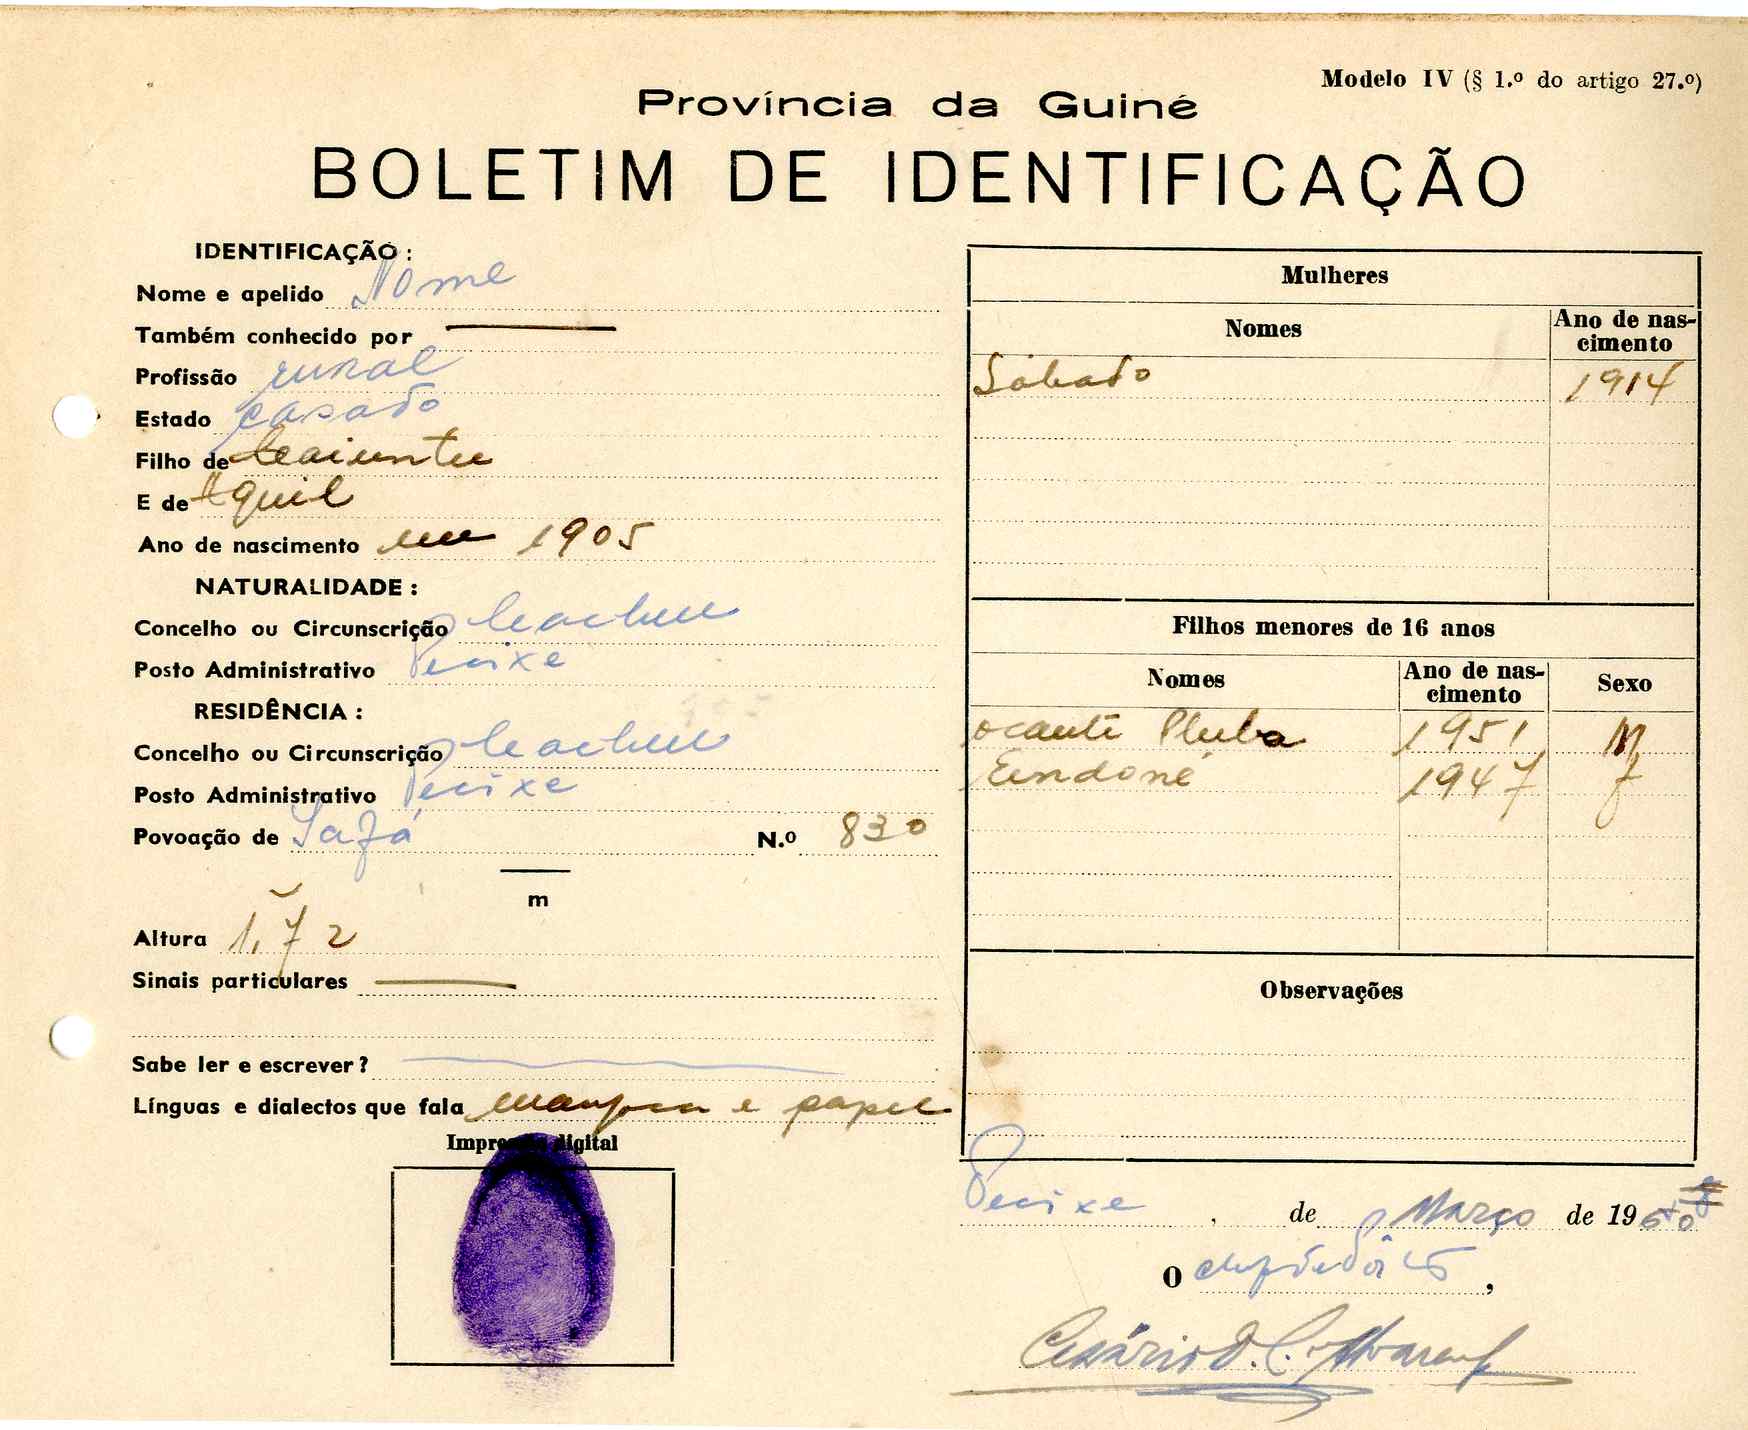 Modelo IV (§ 1.º do artigo 27.º)
Província da Guiné
BOLETIM DE IDENTIFICAÇÃO
IDENTIFICAÇÃO :
Nome e apelido Nome
Também conhecido por
Profissão rural
Estado casado
Filho de
E de Aquil
Ano de nascimento em 1905
NATURALIDADE :
Concelho ou Circunscrição Cacheu
Posto Administrativo Pecixe
RESIDÊNCIA :
Concelho ou Circunscrição Cacheu
Posto Administrativo Pecixe
Povoação de Safá N.º 830
m
Altura 1,72
Sinais particulares
Sabe ler e escrever?
Línguas e dialectos que fala manjaca e papel
Impressão digital
Mulheres
Nomes Ano de nascimento
Sábado 1914
Filhos menores de 16 anos
Nomes Ano de nascimento Sexo
ocanti 1951 M
1947 f
Observações
Pecixe , de Março de 19
O ,
Cesário D. C.